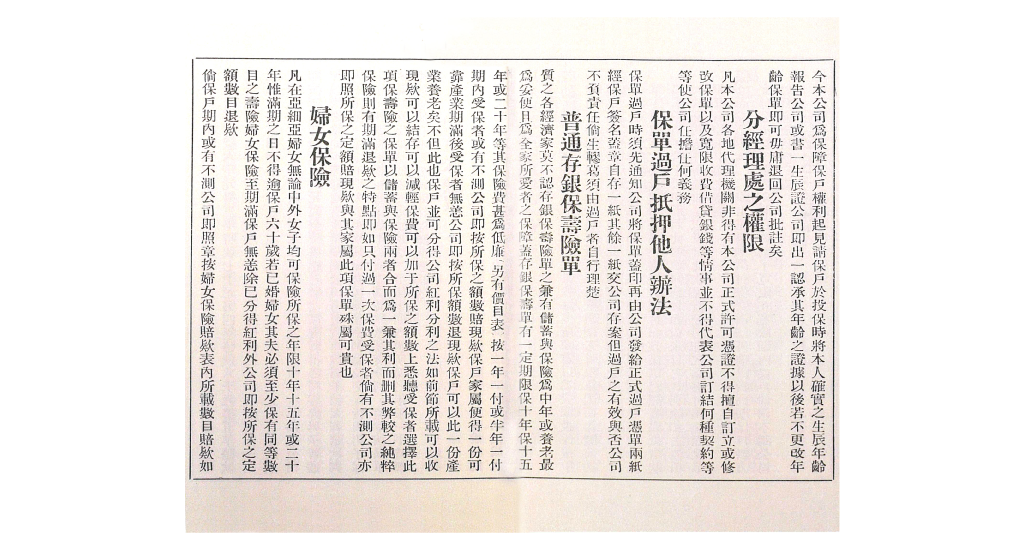 今本公司爲保障保戶權利起見請保戶於投保時將本人確實之生辰年齡
報告公司或書一生辰證公司即出一認承其年齡之證據以後若不更改年
齡保單即可毋庸退回公司批註矣
分經理處之權限
凡本公司各地代理機關非得有本公司正式許可憑證不得擅自訂立或修
改保單以及寬限收費借貸銀錢等情事並不得代表公司訂結何種契約等
等使公司任擔任何義務
保單過戶抵押他人辦法
保單過戶時須先通知公司將保單蓋印再由公司發給正式過戶憑單兩紙
經保戶簽名蓋章自存一紙其餘一紙交公司存案但過戶之有效與否公司
不負責任倘生轇葛須由過戶者自行理楚
普通存銀保壽險單
質之各經濟家莫不認存銀保壽險單之兼有儲蓄與保險爲中年或養老最
爲妥便且爲全家所愛者之保障蓋存銀保壽單有一定期限保十年保十五
年或二十年等其保險費甚爲低廉另有價目表按一年一付或半年一付
期內受保者或有不測公司即按所保之額數賠現欵保戶家屬便得一份可
靠產業期滿後受保者無恙公司即按所保額數還現欵保戶可以此一份產
業養老矣不但此也保戶並可分得公司紅利分利之法如前節所載可以收
現欵可以結存可以減輕保費可以加于所保之額數上悉聽受保者選擇此
項保壽險之保單以儲蓄與保險兩者合而爲一兼其利而删其弊較之純粹
保險則有期滿還欵之特點即如只付過一次保費受保者倘有不測公司亦
即照所保之定額賠現欵與其家屬此項保單殊屬可貴也
婦女保險
凡在亞細亞婦女無論中外女子均可保險所保之年限十年十五年或二十
年惟滿期之日不得逾保戶六十歲若已婚婦女其夫必須至少保有同等數
目之壽險婦女保險至期滿保戶無恙除已分得紅利外公司即按所保之定
額數目還欵
倘保戶期內或有不測公司即照章按婦女保險賠欵表內所載數目賠欵如